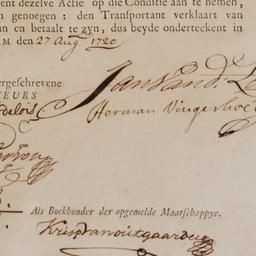 ent dezelve Actie op die Conditie aan te nemen,
en genoegen: den Transportant verklaart van
an en betaalt te zyn, dus beyde onderteekent in
M den 27 Aug 1720
ergeschrevene
TEURS
Jan van d.
Herman Vingerhoe
Als Boekhouder der opgemelde Maatschappye.
Krispianouitgaarden